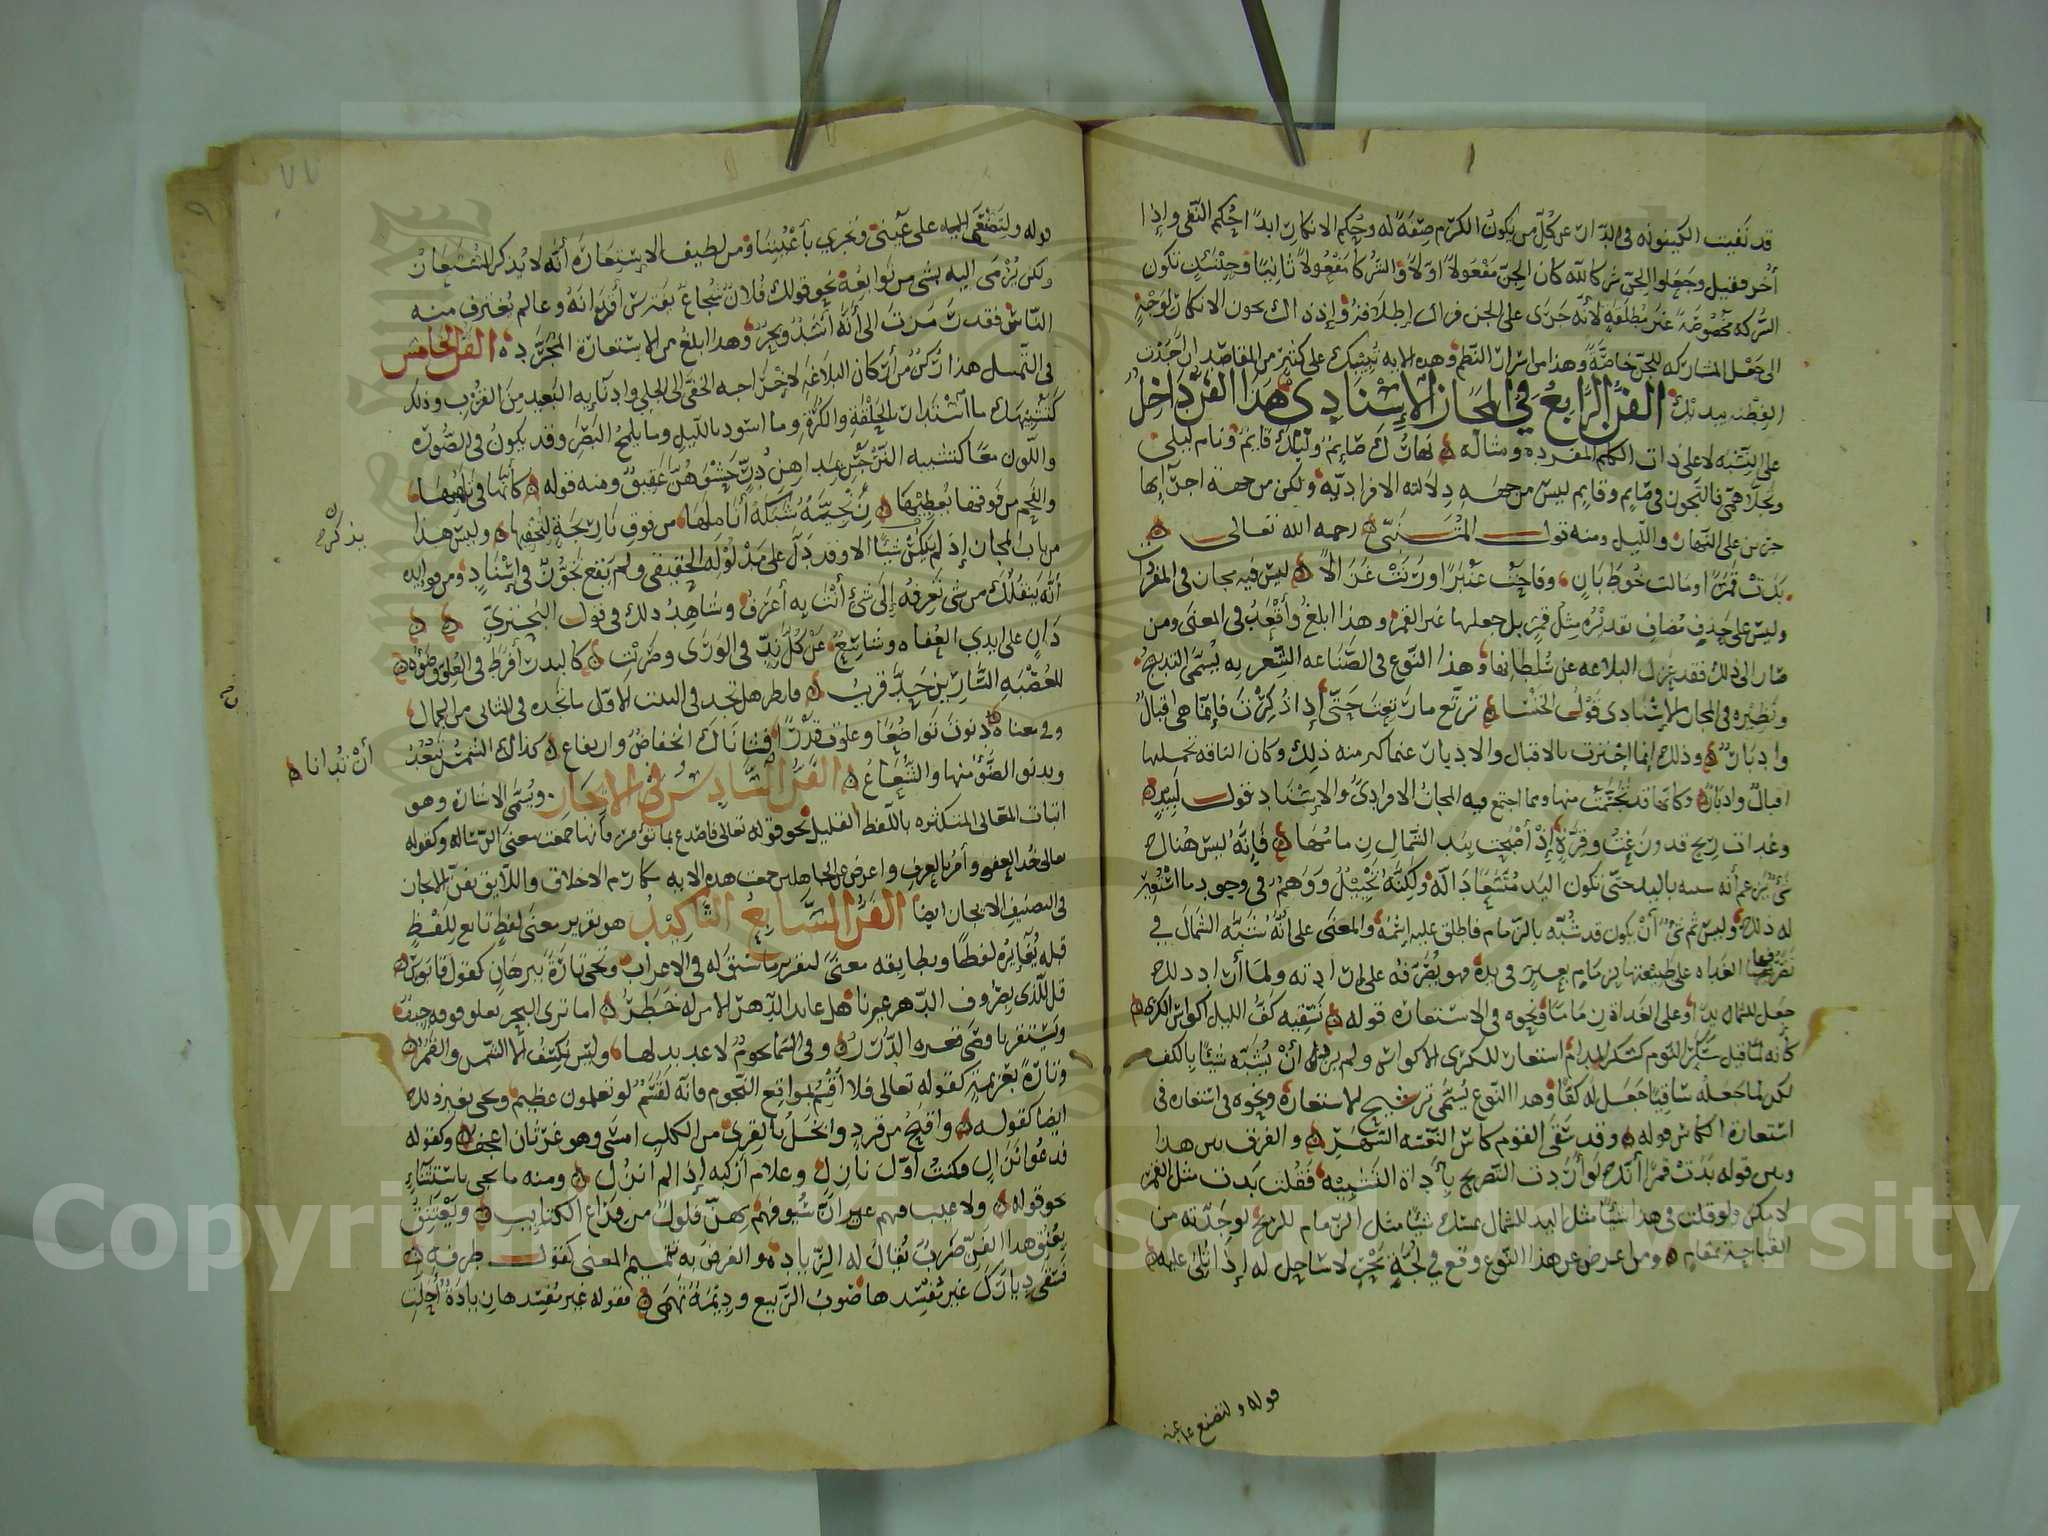 قد نفيت الكينونه في الدار عن كل من يكون الكرم صفة له وحكم الانكار ابدًا حكم النفي واذا
أخر فقيل وجعلوا الجن شركا لله كان الجن مفعولًا اوّلًا والشركا مفعولًا ثانيًا وحينئذٍ تكون
الشركة مخصوصةً غير مطلقةٍ لأنه جرى على الجن
الى جعل المشاركه للجن خاصّةً وهذا من اسرار النظم وهذه الايه تنبيك على كثير من المقاصد ان جذبت
الفطنه بيدك الفنّ الرّابعُ في المجاز الإسنادي هذا الفنّ داخل
على النسبه لا على ذات الكلم المفرده ومثاله نهارك صايمٌ وليلك قايمٌ ونام ليلي
وتجلا همّي فالتجوز في صايم وقايم ليس من جهه دلالته الافراديّه ولكن من جهة اجرآئها
خبرين على النهار والليل ومنه قول المتنبّي رحمه الله تعالى
بدت قمرًا ومالت خُوطَ بانٍ وفاحت عنبرًا ورنت غزالًا ليس فيه مجاز في المفردات
وليس على حذف مضاف تقديره مثل قمرٍ بل جعلها عين القمر وهذا ابلغ وأقعد في المعنى ومن
صار الى ذلك فقد عزل البلاغه عن سلطانها وهذا النّوع في الصّناعه الشعريه يُسمّى التدبيج
ونظيره في المجاز الإسنادى قول الخنسا ترتع ما رتعت حتّى إذا ذكرت فإنما هي اقبالٌ
وإدبارٌ وذلك إنما اخبرت بالاقبال والادبار عنها لكثرة منه ذلك وكان الناقه تحملها
اقبالٌ وادبارٌ وكانها قد تجسّمت منها ومما اجتمع فيه المجاز الافراديّ والإسنادي قول لبيدٍ
وغداةِ ريح قد وزعت وقرّةٍ إذ أصبحت بيد الشمال زمامها فإنه ليس هناك
شيٌ يزعم أنه شبه باليد حتى تكون اليد مستعارةً له ولكنّه تخييلٌ ووهمٌ في وجود ما استعير
له ذلك وليس ثم شيٌ أن يكون قد شبّه بالزمام فاطلق عليه اسمهُ والمعنى على أنّه شبّه الشمال في
تصريفها الغداه على طبيعتها بزمام بعيرٍ في يده فهو يُصرّفه على ارادته ولما أراد ذلك
جعل للشمال يدًا وعلى الغداة زمامًا ونحوه في الاستعاره قوله تسقيه كفُّ الليل اكواس الكرى
كأنه لمّا قيل سكرُ النّوم كسكر المدام استعار للكرى الاكواس ولم يرد أنْ يُشبّه شيئًا بالكفّ
لكن لما جعله ساقيًا جعل له كفًّا وهذا النّوع يُسمّى ترشيح الاستعارة ونحوه في استعاره في
استعارة الكاس قوله وقد سقى القوم كاس النّعسه السّهر والفرق بين هذا
وبين قوله بدت قمرًا أنّك لو أردت التّصريح بأداة التّشبيه فقلت بدت مثل القمر
لأمكن ولو قلت في هذا شيًا مثل اليد للشمال يمسك شيًا مثل الزّمام للريح لوجدته من
القباحة بمقام ومن اعرض عن هذا النّوع وقع في لُجّة بحرٍ لا ساحل له إذا تُلي عليه
قوله ولتصنع على عيني
قوله ولتصنع على عيني وتجري بأعيننا ومن لطيف الاستعارة أنّه لا يُذكر المستعار
ولكن يُرْمى اليه بشي من توابعه نحو قولك فلان شجاعٌ يفترس أقرانه وعالم يغترف منه
النّاس فقد رمزت الى أنّه أسدٌ وبحرٌ وهذا ابلغ من الاستعارة المجرّدة الفنّ الخامس
في التّمثيل هذا ركنٌ من أركان البلاغه لاخراجه الخفيّ الى الجلي وإدنآيه البعيد من القريب وذلك
كتشبيهك ما استدار بالحلقة والكرة وما اسود بالليل وما يلمح البصر وقد يكون في الصّوره
واللّون معًا كتشبيه النّرجس بمداهن دُرٍّ حشوهنّ عقيقٌ ومنه قوله كأنّها
والفحم من فوقها يغطيها زنجيّةٌ شبكة أناملها من فوق نارنجةٍ لتخفيها وليس هذا
من باب المجاز إذ لم يذكر شيًّا الا وقد دلّ على مدلوله الحقيقي ولم يقع تجوّزٌ في إسناد ومن فوايده
أنّه ينقلك من شي تعرفه إلى شيءٍ أنت به أعرف وشاهد ذلك في قول البحتريّ
دانٍ على ايدي العفاه وشاسعٌ عن كل ندٍّ في الورى وضريب كالبدر أفرط في العلوّ وضوءه
للعصبه السّارين جدّ قريب فانظر هل تجد في البيت الاوّل ما تجده في الثاني من الجمال
وفي معناه دنوت تواضعًا وعلوت قدرًا فشاناك انخفاضٌ وارتفاع كذاك الشمسُ تبعُد
أن تُدانا
ويدنو الضّوء منها والشّعاع الفنّ السّادسُ في الإيجاز ويُسمّى الاشاره وهو
اثبات المعاني المتكثره باللّفظ القليل نحو قوله تعالى فاصدع بما تؤمر فانها جمعت معنى الرّساله وكقوله
تعالى خُذ العفو وأمر بالعرف واعرض عن الجاهلين جمعت هذه الايه مكارم الاخلاق واللّايق بفنّ المجاز
في التصنيف الايجاز ايضًا الفنّ السّابعُ التّاكيدُ هو تقرير معنى لفظٍ تابع للفظٍ
قبله يُغايره لفظًا ويطابقه معنىً لتقرير ما سيق له في الاعراب ونحى تارةً ببرهان كقول قابوس
قل للّذى بصروف الدّهر عيرنا هل عاند الدّهر إلا من له خطرُ اما ترى البحر تعلو فوقه جيفٌ
ويستقرّ باقصى قعره الدّررُ وفي السّما نجومٌ لا عديد لها وليس يُكسف إلّا الشّمس والقمر
وتارةً بعزيمةٍ كقوله تعالى فلا أقسمُ بمواقع النّجوم وانّه لقسمٌ لو تعلمون عظيم ونحى بغير ذلك
ايضًا كقوله واقبح من قردٍ وابخل بالقرى من الكلب امسى وهو غرثان اعجف وكقوله
فدعوا نزال فكنت أوّل نازلٍ وعلام أركبه إذا لم انزل ومنه ما يجي باستثناءٍ
نحو قوله ولا عيب فيهم غير انّ سيوفهم بهنّ فلولٌ من قراع الكتايب ويعتنق
بعُنُق هذا الفنّ ضربٌ يُقالُ له الزّياده والغرض به تتميم المعنى كقول طرفه
فسقى ديارك غير مفسدها صوبُ الرّبيع وديمةٌ تهمي فقوله غير مفسدها زيادةٌ أجلت
٧٧
Copyright © King Saud University